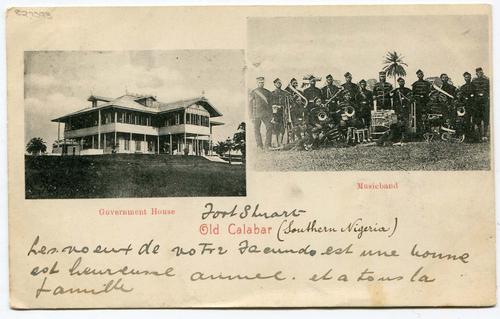 Government House
Musicband
Fort Stuart
Old Calabar (Southern Nigeria)
Les voeux de votre Jacundo est une bonne
est heureuse annuel. et a tous la
famille